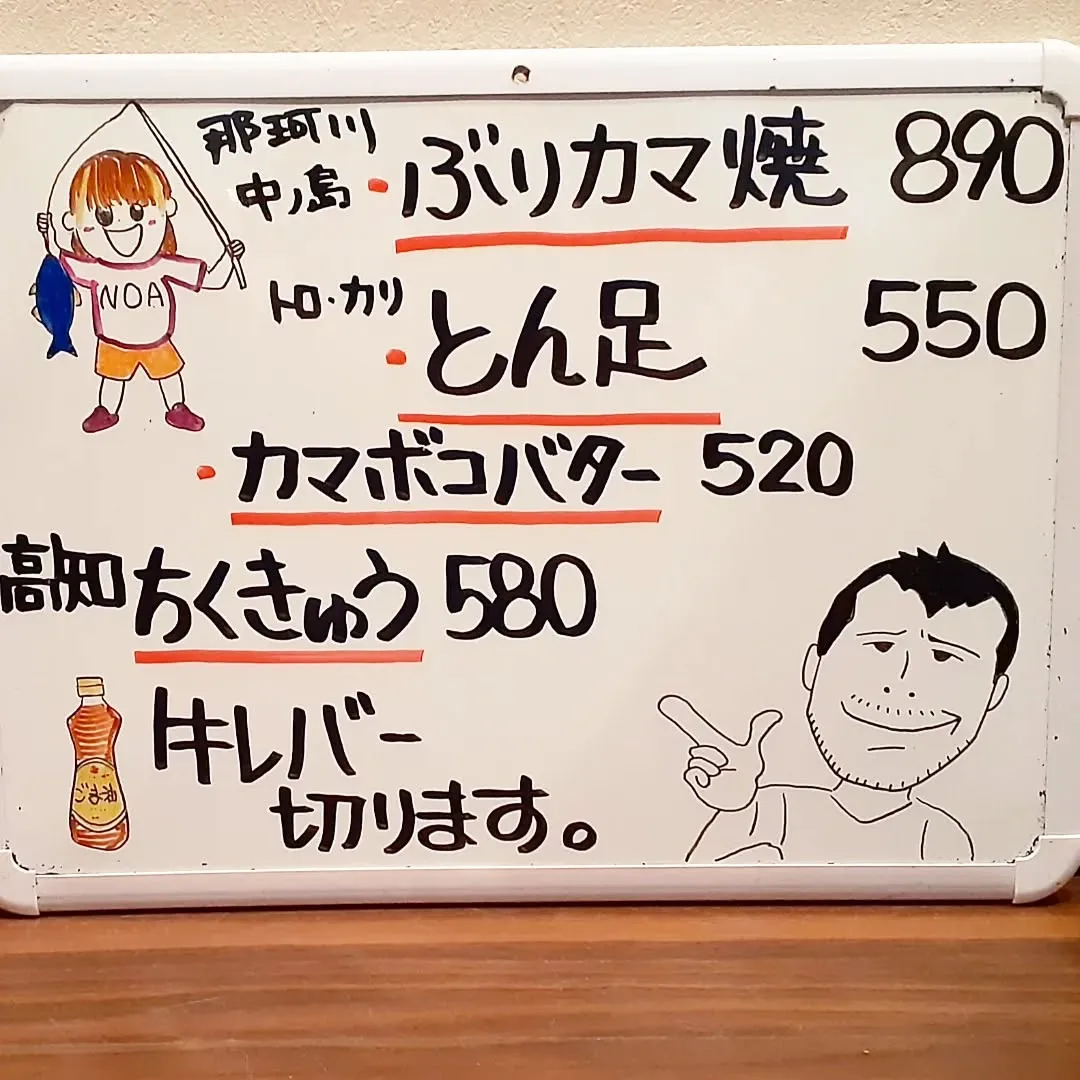 那珂川
中ノ島
・ぶりカマ焼 890
NOA
トロ・カリ
・とん足 550
・カマボコバター 520
高知 ちくきゅう 580
牛レバー
切ります。
ごま油